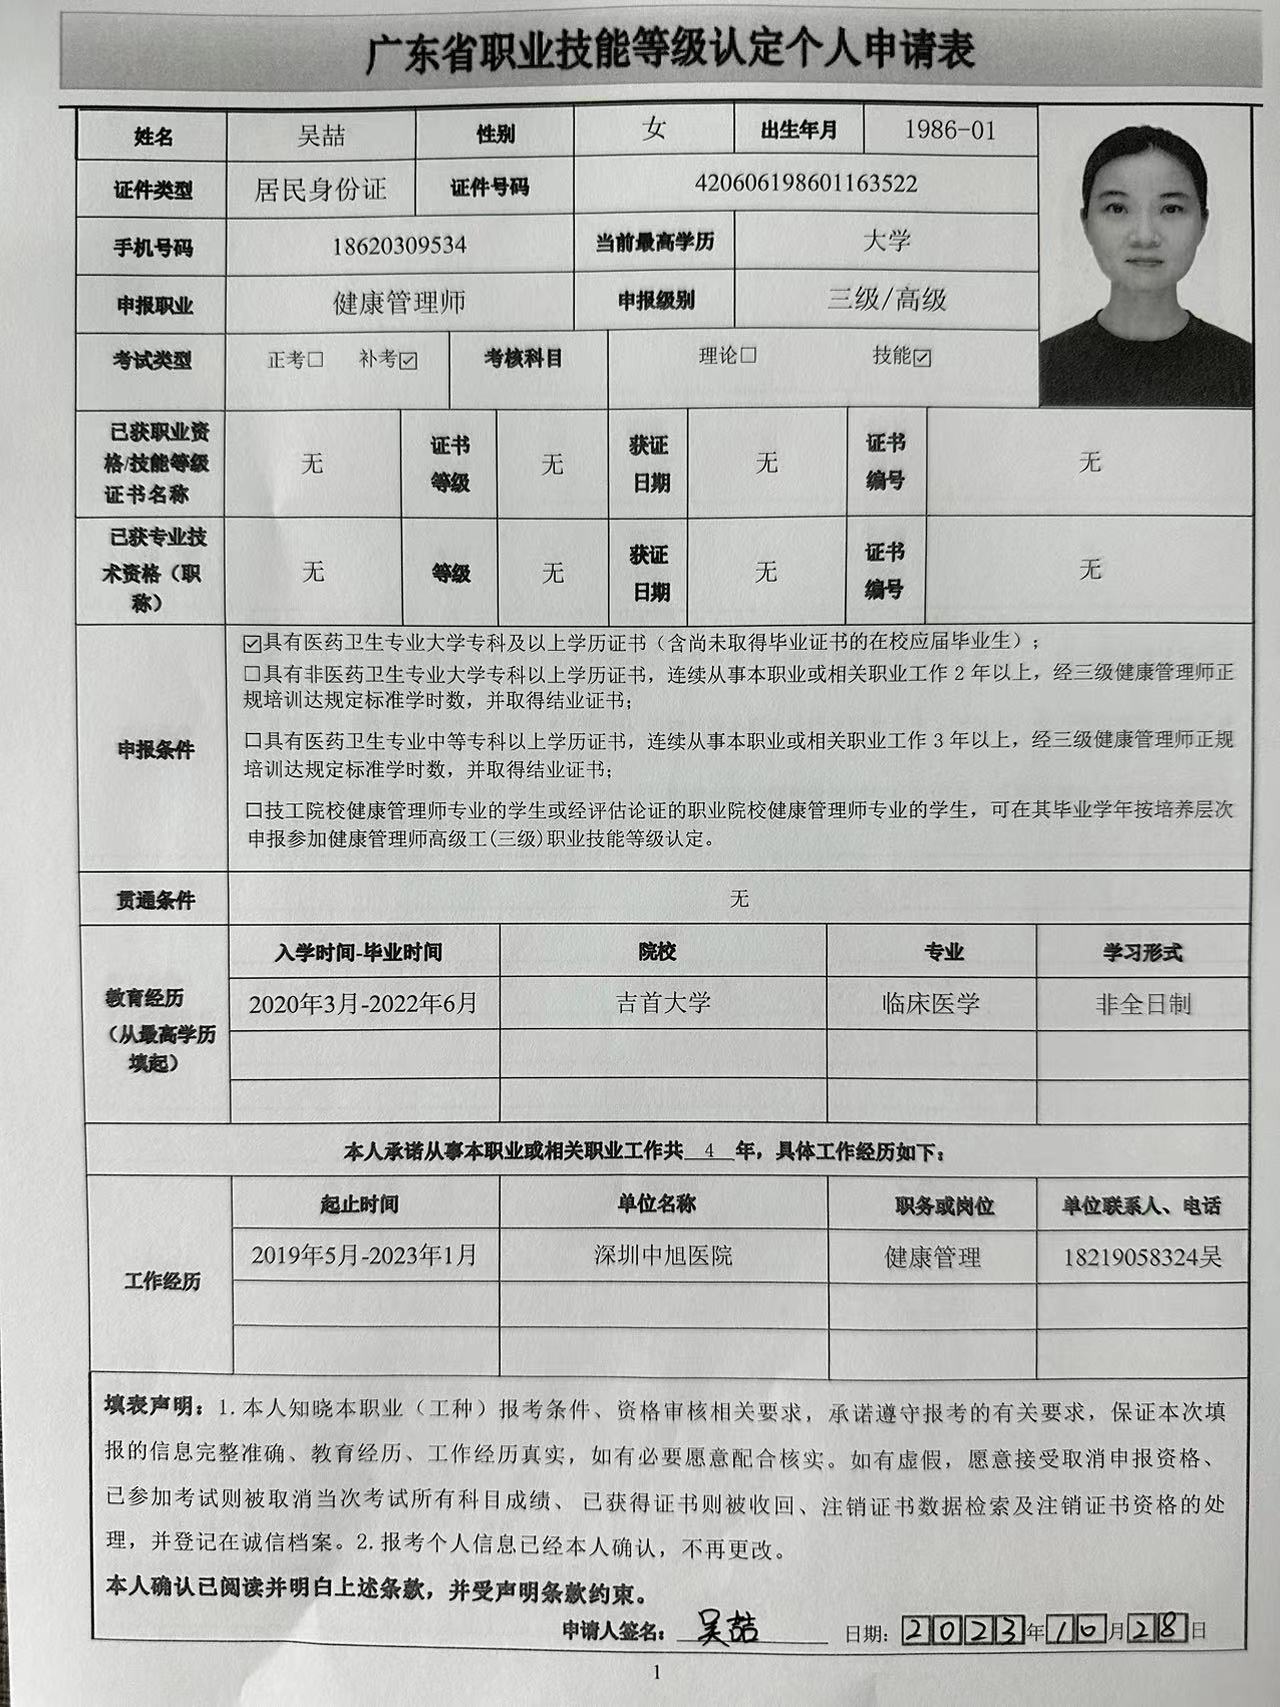 广东省职业技能等级认定个人申请表
姓名 吴喆 性别 女 出生年月 1986-01
证件类型 居民身份证 证件号码 420606198601163522
手机号码 18620309534 当前最高学历 大学
申报职业 健康管理师 申报级别 三级/高级
考试类型 正考☐ 补考☑ 考核科目 理论☐ 技能☑
已获职业资格/技能等级证书名称 无 证书等级 无 获证日期 无 证书编号 无
已获专业技术资格（职称） 无 等级 无 获证日期 无 证书编号 无
申报条件
☑具有医药卫生专业大学专科及以上学历证书（含尚未取得毕业证书的在校应届毕业生）；
☐具有非医药卫生专业大学专科以上学历证书，连续从事本职业或相关职业工作 2 年以上，经三级健康管理师正
规培训达规定标准学时数，并取得结业证书；
☐具有医药卫生专业中等专科以上学历证书，连续从事本职业或相关职业工作 3 年以上，经三级健康管理师正规
培训达规定标准学时数，并取得结业证书；
☐技工院校健康管理师专业的学生或经评估论证的职业院校健康管理师专业的学生，可在其毕业学年按培养层次
申报参加健康管理师高级工(三级)职业技能等级认定。
贯通条件 无
教育经历（从最高学历填起）
入学时间-毕业时间 院校 专业 学习形式
2020年3月-2022年6月 吉首大学 临床医学 非全日制
本人承诺从事本职业或相关职业工作共 4 年，具体工作经历如下：
工作经历
起止时间 单位名称 职务或岗位 单位联系人、电话
2019年5月-2023年1月 深圳中旭医院 健康管理 18219058324吴
填表声明：1.本人知晓本职业（工种）报考条件、资格审核相关要求，承诺遵守报考的有关要求，保证本次填
报的信息完整准确、教育经历、工作经历真实，如有必要愿意配合核实。如有虚假，愿意接受取消申报资格、
已参加考试则被取消当次考试所有科目成绩、已获得证书则被收回、注销证书数据检索及注销证书资格的处
理，并登记在诚信档案。2.报考个人信息已经本人确认，不再更改。
本人确认已阅读并明白上述条款，并受声明条款约束。
申请人签名： 吴喆 日期：2023年10月28日
1